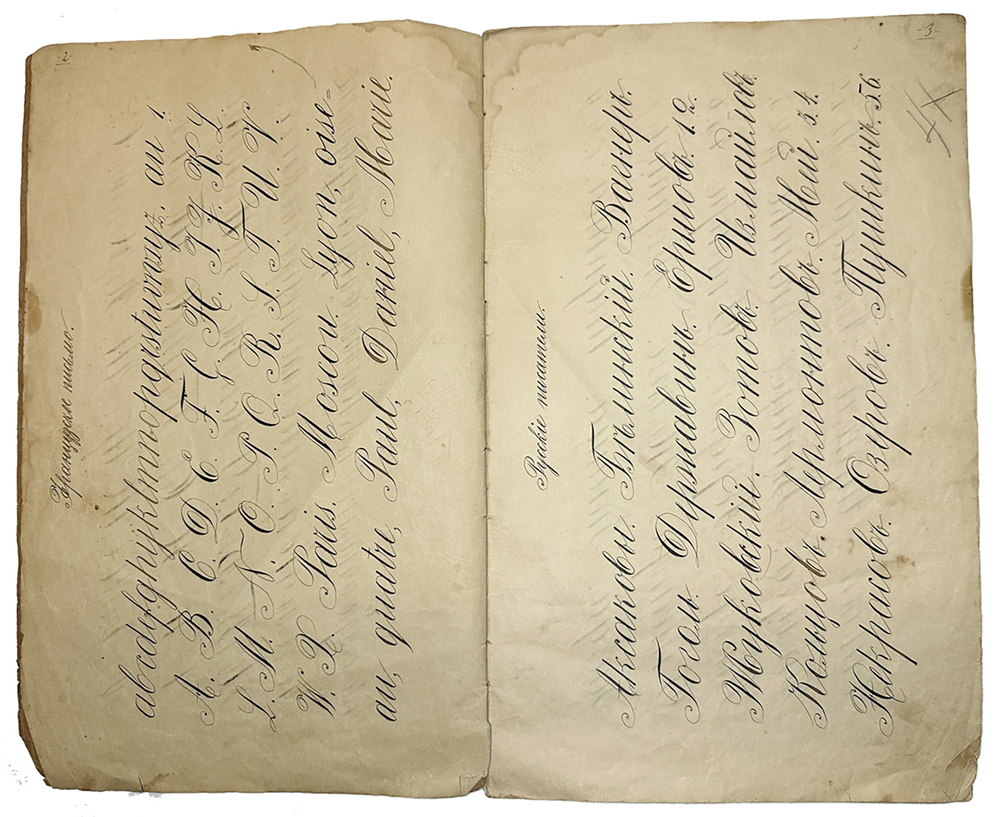 -2-
Французское письмо.
abcdefghijklmnopqrstuvwxyz. au !
A. B. C. D. E. F. G. H. I. J. K. L.
L. M. N. O. P. Q. R. S. T. U. V.
W. X. Paris. Moscou. Lyon, oise=
au, quatre, Paul, Daniel, Marie.
-3-
Русскіе писатели.
Аксаковъ. Бѣлинскій. Вагнеръ.
Гоголь. Державинъ. Ершовъ. 1.2.
Жуковскій. Зотовъ. Измайловъ.
Кольцовъ. Лермонтовъ. Мей. 3.4.
Некрасовъ. Озеровъ. Пушкинъ. 5.6.